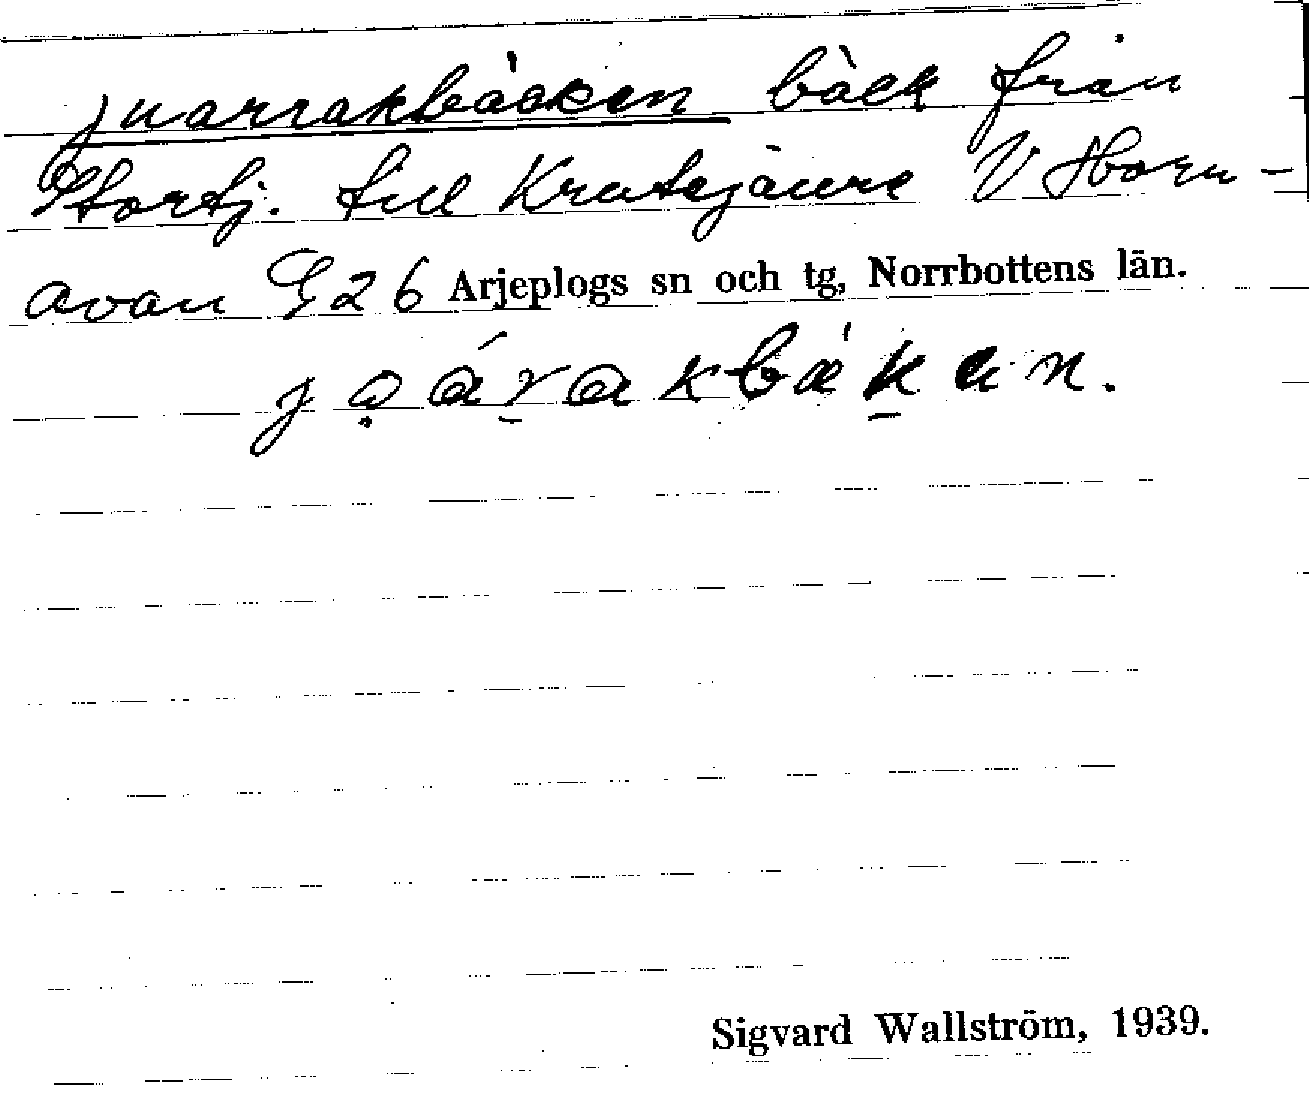 Juarrakbäcken bäck från
Stortj. till Krutejaure V Horn-
avan G 26 Arjeplogs sn och tg, Norrbottens län.
Sigvard Wallström, 1939.